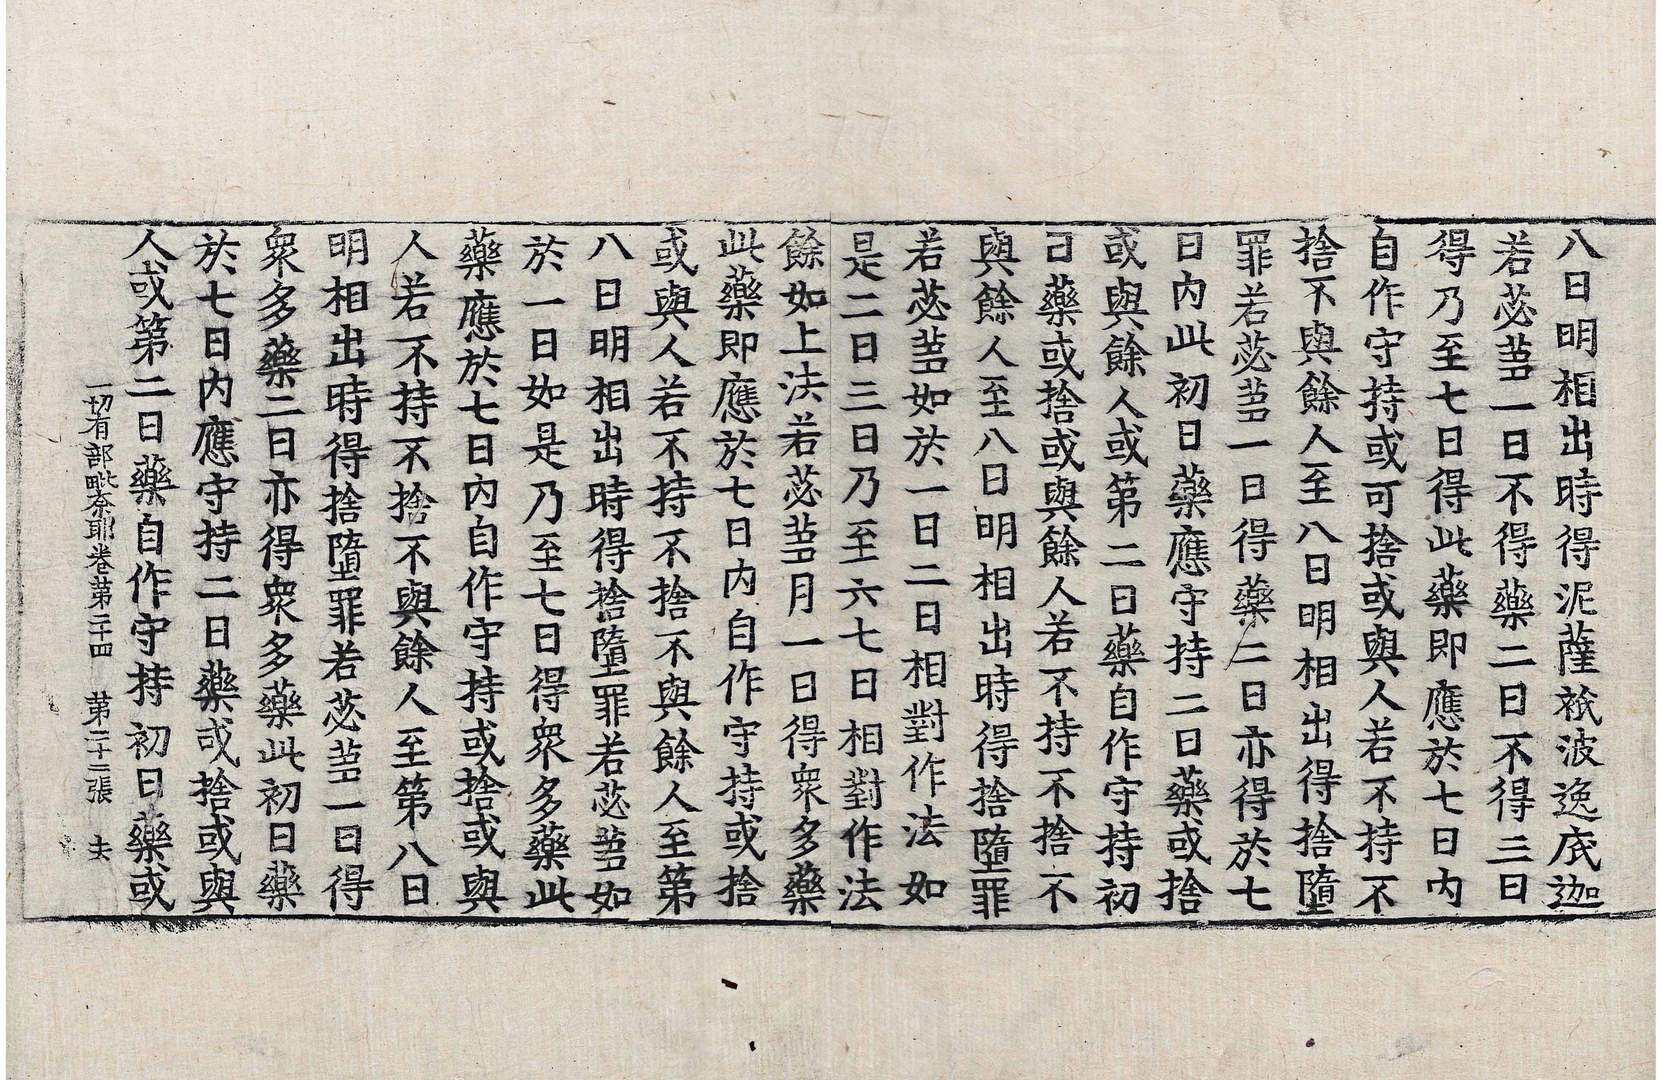 八日明相出時得泥薩祇波逸底迦
若苾芻一日不得藥二日不得三日
得乃至七日得此藥即應於七日内
自作守持或可捨或與人若不持不
捨不與餘人至八日明相出得捨墮
罪若苾芻一日得藥二日亦得於七
日内此初日藥應守持二日藥或捨
或與餘人或第二日藥自作守持初
日藥或捨或與餘人若不持不捨不
與餘人至八日明相出時得捨墮罪
若苾芻如於一日二日相對作法如
是二日三日乃至六七日相對作法
餘如上法若苾芻月一日得衆多藥
此藥即應於七日内自作守持或捨
或與人若不持不捨不與餘人至第
八日明相出時得捨墮罪若苾芻如
於一日如是乃至七日得衆多藥此
藥應於七日内自作守持或捨或與
人若不持不捨不與餘人至第八日
明相出時得捨墮罪若苾芻一日得
衆多藥二日亦得衆多藥此初日藥
於七日内應守持二日藥或捨或與
人或第二日藥自作守持初日藥或
一切有部毗奈耶卷第二十四 第二十二張 夫